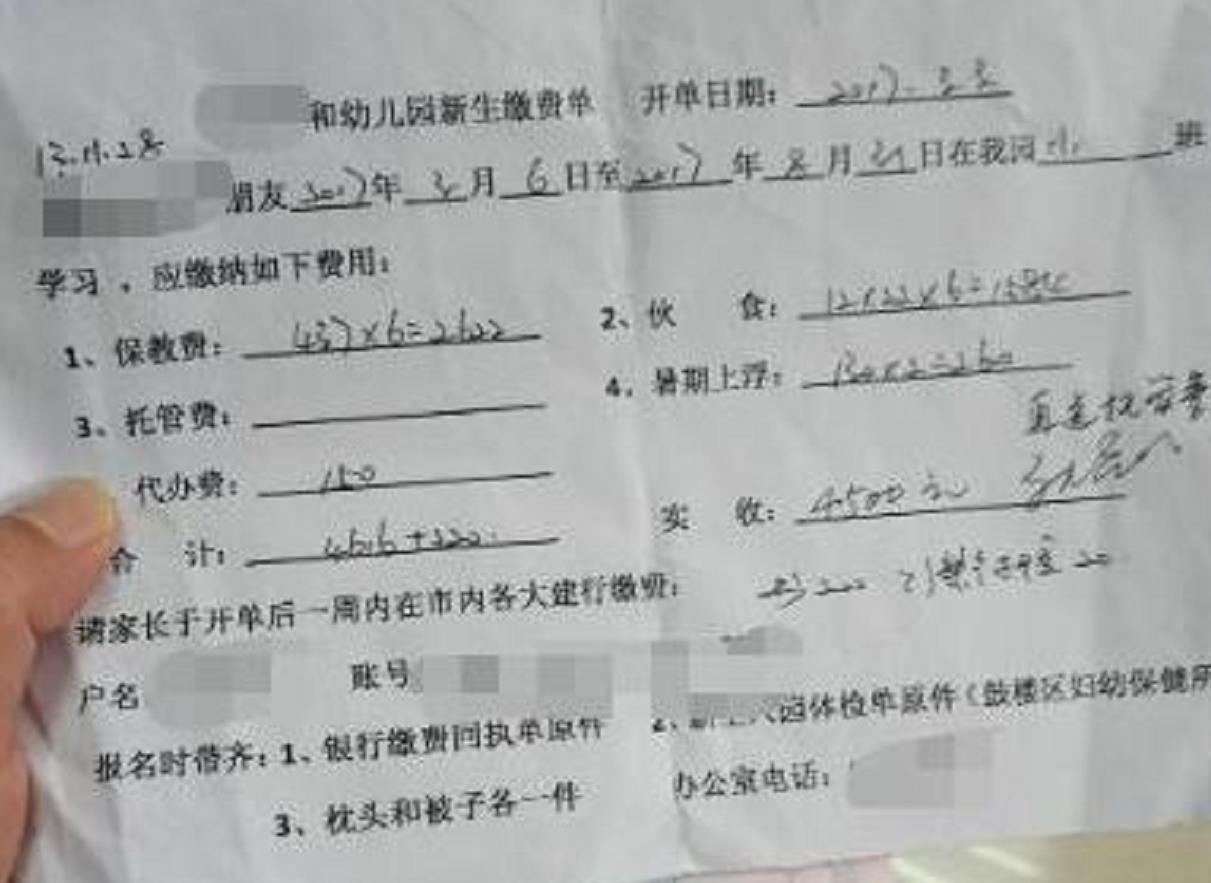 和幼儿园新生缴费单 开单日期: 2017.
13.11.28
朋友2017年3月6日至2017年8月31日在我园小班
学习,应缴纳如下费用:
1、保教费: 437×6=2622 2、伙 食: 12×22×6=1584
3、托管费: 4、暑期上浮: 130×2=260
代办费: 150
合 计: 4616+220 实 收: 4500元
请家长于开单后一周内在市内各大建行缴费:
户名 账号
报名时带齐:1、银行缴费回执单原件 2、园体检单原件(鼓楼区妇幼保健所
3、枕头和被子各一件 办公室电话: